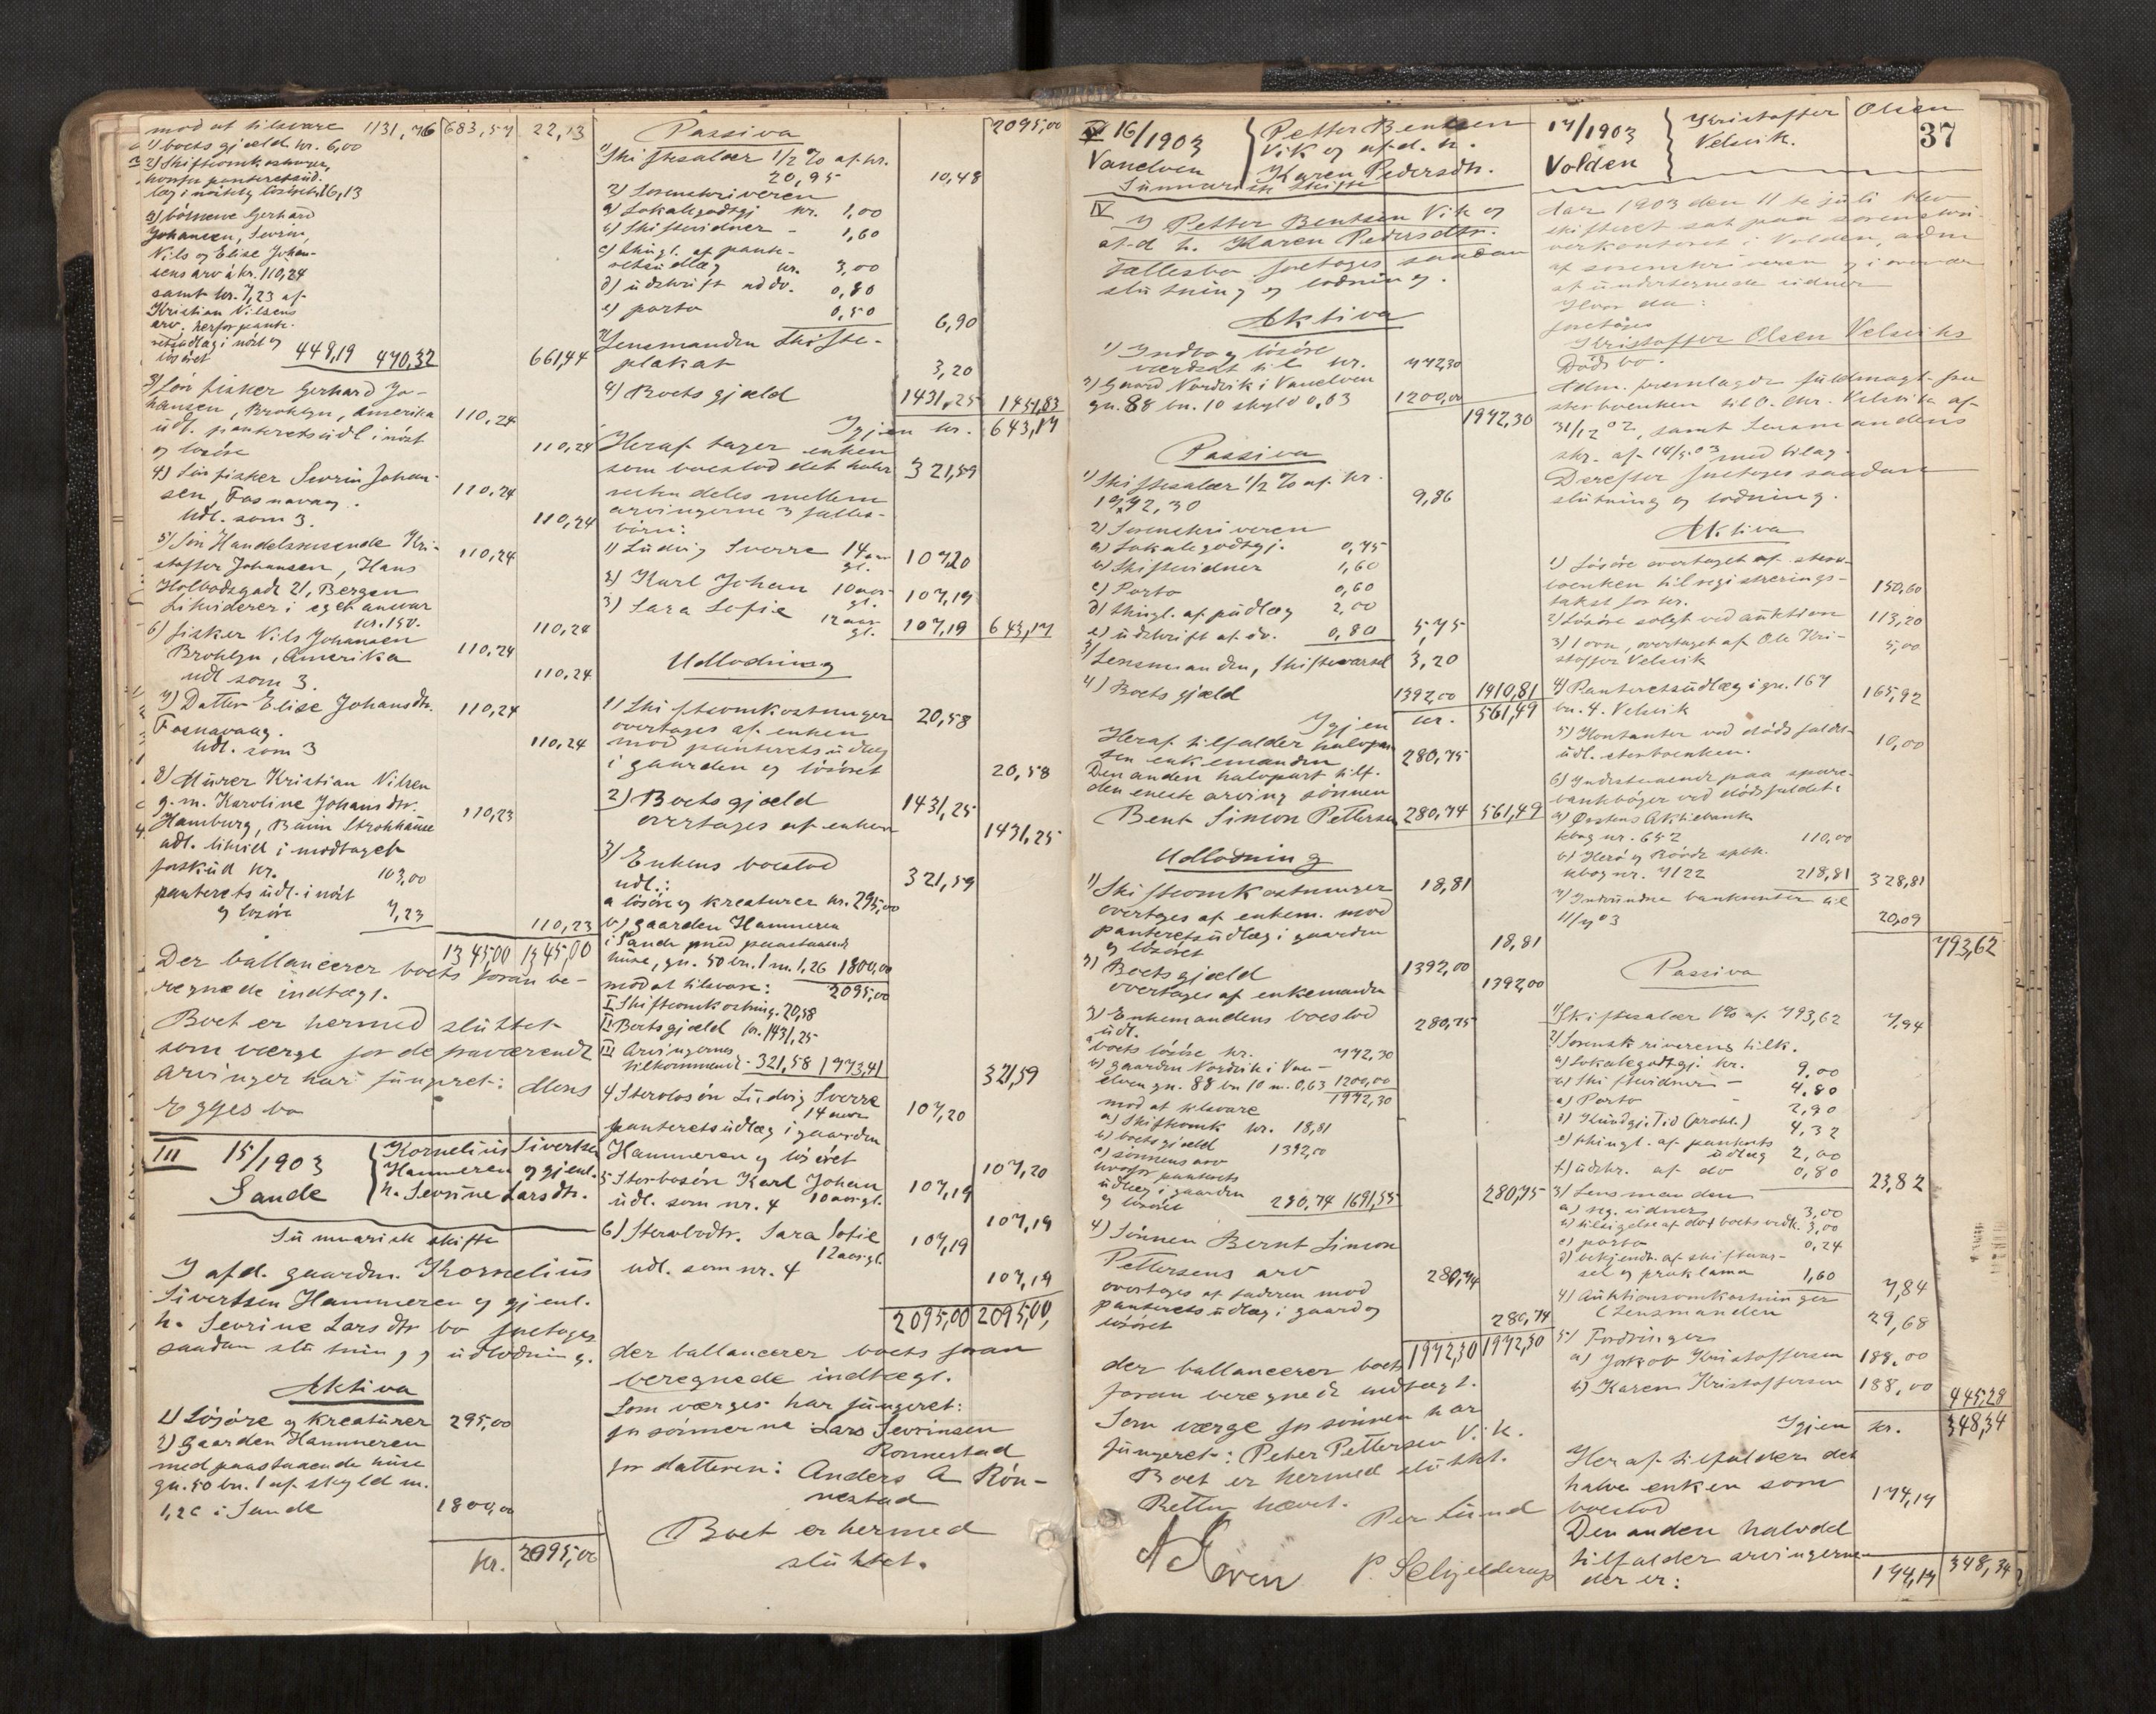 mod at tilsvare 1131,76 683,57 22,13
1) boets gjæld kr. 6,00
2) Skifteomkostninger,
hvorfor panteretsud-
læg i nöst og lösöre 16,13
3) börnene Gerhard
Johansen, Sevrin,
Nils og Elise Johan-
sens arv á kr. 110,24
samt kr. 7,23 af
Kristian Nilsens
arv, herfor pante-
retsudlæg i nöst og
lösöret 449,19 470,32 661,44
3) Sön fisker Gerhard Jo-
hansen, Broklyn, Amerika 110,24
udl. panteretsudl i nöst
og lösöre 110,24
4) Sön fisker Sevrin Johan-
sen, Fosnavaag. 110,24
Udl. som 3. 110,24
5) Sön Handelsreisende Kri-
stoffer Johansen, Hans 110,24
Holbodsgade 21, Bergen
Likviderer i eget ansvar
kr. 150. 110,24
6) fisker Nils Johansen
Broklyn, Amerika 110,24
udl som 3. 110,24
7) Datter Elise Johansdtr.
Fosnavaag. 110,24
Udl. som 3 110,24
8) Murer Kristian Nilsen
g.m. Karoline Johansdtr.
Hamburg, Beim Strohhause 110,23
udl. likvid i modtaget
forskud kr. 103,00
panterets udl. i nöst
og lösöre 7,23
110,23
1345,00 1345,00
Der ballancerer boets foran be-
regnede indtægt.
Boet er hermed sluttet
som værge for de fraværende
arvinger har fungeret: Mons
Eggesbø
III 15/1903 Kornelius Sivertsen
Hammeren og gjenl.
Sande h. Sevrine Larsdtr.
Summarisk skifte
I afd. gaardm. Kornelius
Sivertsen Hammeren og gjenl.
h. Sevrine Larsdtr bo foretoges
saadan slutning og udlodning.
Aktiva
1) Lösöre og kreaturer 295,00
2) Gaarden Hammeren
med paastaaende huse
gn. 50 bn. 1 af skyld m.
1,26 i Sande 1800,00
kr. 2095,00
Passiva 2095,00
1) Skiftesalær 1/2 % af kr.
20,95 10,48
2) Sorenskriveren
a) Lokalegodtgj kr. 1,00
b) Skiftevidner - 1,60
c) thingl. af pante-
retsudlæg kr. 3,00
d) udskrift af do. 0,80
e) porto 0,50
6,90
3) Lensmanden Skifte-
plakat 3,20
4) Boets gjæld 1431,25 1451,83
Igjen kr. 643,17
Heraf tager enken
som boeslod det halve 321,59
resten deles mellem
arvingerne 3 fælles-
börn:
1) Ludvig Sverre 14 aar gl. 107,20
2) Karl Johan 10 aar gl. 107,19
3) Sara Sofie 12 aar gl. 107,19 643,17
Udlodning
1) Skifteomkostninger 20,58
overtages af enken
mod panteretsudlæg
i gaarden og lösöret 20,58
2) Boets gjæld 1431,25
overtages af enken 1431,25
3) Enkens boeslod
udl.: 321,59
a lösöre og kreaturer kr. 295,00
b) gaarden Hammeren
i Sande med paastaaende
huse, gn. 50 bn. 1 m. 1,26 1800,00
mod at tilsvare: 2095,00
I Skifteomkostning. 20,58
II Boets gjæld kr. 1431,25
III Arvingernes
tilkommende - 321,58 1773,41
321,59
4 Sterbosön Ludvig Sverre
14 aar 107,20
panteretsudlæg i gaarden
Hammeren og lösöret
107,20
5 Sterbosön Karl Johan
10 aar gl. 107,19
udl. som nr. 4
107,19
6) Sterbodtr. Sara Sofie
12 aar gl. 107,19
udl. som nr. 4
107,19
2095,00 2095,00
der ballancerer boets foran
beregnede indtægt.
Som værger har fungeret:
for sönnerne Lars Sevrinsen
Rönnestad
for datteren: Anders A Rön-
nestad
Boet er hermed
sluttet.
IV 16/1903 Petter Bentsen
Vik og afd. h.
Vanelven Karen Pedersdtr.
Summarisk Skifte
IV
I Petter Bentsen Vik og
afd h. Karen Pedersdtr.
fællesbo foretoges saadan
slutning og lodning.
Aktiva
1) Indbo og lösöre
værdsat til kr. 772,30
2) Gaard Nordvik i Vanelven
gn. 88 bn. 10 skyld 0,63 1200,00
1972,30
Passiva
1) Skiftesalær 1/2 % af kr.
1972,30 9,86
2) Sorenskriveren
a) Lokalegodtgj. 0,75
b) Skiftevidner 1,60
c) Porto 0,60
d) thingl. af p.udlæg 2,00
e) udskrift af do. 0,80 5,75
3) Lensmanden, Skiftevarsel 3,20
4) Boets gjæld 1392,00 1410,81
Igjen kr. 561,49
Heraf tilfalder halvpar
ten enkemanden 280,75
Den anden halvpart tilf.
den eneste arving sönnen
Bent Simon Pettersen 280,74 561,49
Udlodning
1) Skifteomkostninger 18,81
overtages af enkem. mod
panteretsudlæg i gaarden
og lösöret 18,81
2) Boets gjæld 1392,00
overtages af enkemanden 1392,00
3) Enkemandens boeslod
udl. 280,75
a boets lösöre kr. 772,30
b) gaarden Nordvik i Van-
elven gn. 88 bn 10 m. 0,63 1200,00
1972,30
mod at tilsvare
a) Skifteomk kr. 18,81
b) boets gjæld 1392,00
c) sönnens arv
hvorfor panterets
udlæg i gaarden
og lösöret 280,74 1691,55
280,75
4) Sönnen Bernt Simon
Pettersens arv 280,74
overtages af faderen mod
panteretsudlæg i gaard og
lösöret 280,74
1972,30 1972,30
der ballancerer boets
foran beregnede indtægt.
Som værge for sönnen har
fungeret: Peter Pettersen Vik.
Boet er hermed sluttet.
Retten hævet.
Per Lund
P. Schjelderup
17/1903 Kristoffer Olsen
Velsvik.
Volden
37
Aar 1903 den 11te juli blev
skifteret sat paa sorenskri-
verkontoret i Volden, adm
af sorenskriveren og i overvær
af undertegnede vidner
Hvor da:
foretoges
Kristoffer Olsen Velsviks
Dödsbo.
Adm. fremlagde fuldmagt fra
sterboenken til O. Chr. Velsvik af
31/12 02, samt Lensmandens
skr. af 14/5 03 med bilag.
Derefter foretoges saadan
slutning og lodning.
Aktiva
1) Lösöre overtaget af sterbo-
boenken til registrerings-
takst for kr. 150,60
2) Lösöre solgt ved auktion 113,20
3) 1 ovn, overtaget af Ole Kri-
stoffer Velsvik 5,00
4) Panteretsudlæg i gn. 167
bn. 4. Velsvik 165,92
5) Kontanter ved dödsfaldet
udl. sterboenken. 10,00
6) Indestaaende paa spare-
bankböger ved dödsfaldet:
a) Örstens Aktiebank
kbog nr. 652 110,00
b) Herö og Rövde spbk.
kbog nr. 7122 218,81 328,81
7) Indvundne bankrenter til
11/7 03 20,09
793,62
Passiva
1) Skiftesalær 1% af 793,62 7,94
2) Sorenskriverens tilk.
a) Lokalegodtgj. kr. 9,00
b) Skiftevidner - 4,80
c) Porto - 2,90
d) Kundgj. Tid (prokl.) 4,32
e) thingl. af pantrets
udlæg 2,00
f) udskr. af do 0,80 23,82
3) Lensmanden
a) reg. vidner 3,00
b) tilsigelse af do + boets vedk. 3,00
c) porto 0,24
d) bekjendtg. af skiftevar-
sel og proklama 1,60
7,84
4) Auktionsomkostninger
(Lensmanden 29,68
5) Fordringer
a) Jakob Kristoffersen 188,00
b) Karen Kristoffersen 188,00 445,28
Igjen kr. 348,34
Heraf tilfalder det
halve enken som
boeslod 174,17
Den anden halvdel
tilfalder arvingerne
der er: 174,17 348,34